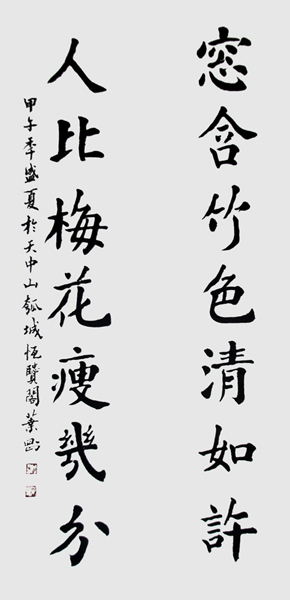 窓含竹色清如許
人比梅花瘦幾分
甲午年盛夏於天中山瓠城恒賢閣葉